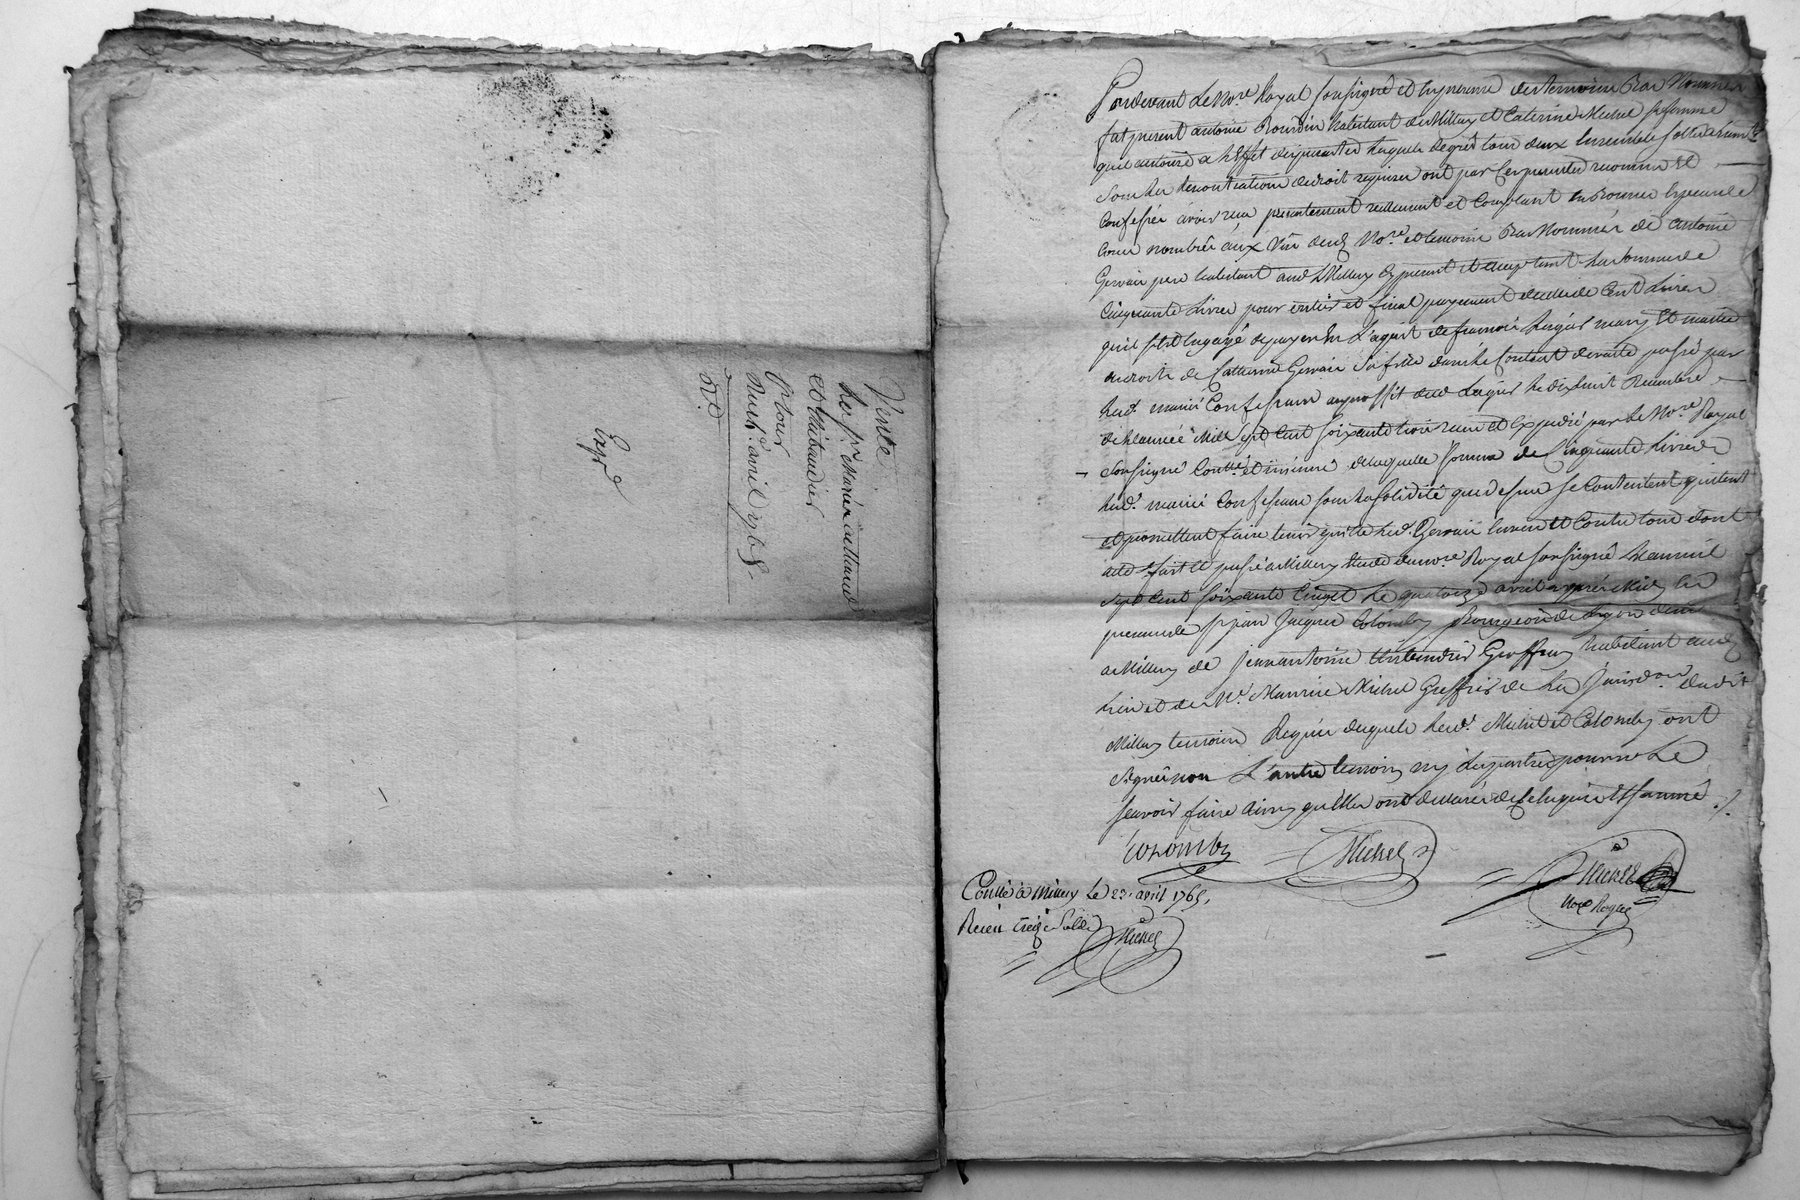 Vente
les sr Marie
et thibaudier
dud. avril 1765
Expé
Pardevant Le No.re Royal soussigné et En presence des temoins Bas Nommes
fut present antoine Bourdin habitant de Millery et Caterine Michel sa femme
qu'il autorise a l'effet des presentes lesquels de gré tous deux Ensemble solidairement
sous les renontiations de droit requises ont par Ces presentes reconnu et
Confessé avoir reçu presentement reellement et Comptant En Bonnes Especes de
Cours nombrée aux vûe dud. No.re et temoins Bas Nommés de antoine
Gervais pere habitant aud. Millery Cy present et acceptant La somme de
Cinquante Livres pour entier et final payement de celle de Cent Livres
qu'il s'est Engagé de payer En L'aquit de francois Lugié mary Et maitre
des droits de Catterine Gervais sa fille dans le Contrat de vente passé par
Les d. mariés Confessant au proffit dud. Lugié le dix huit Novembre
de L'année Mille sept Cent soixante trois reçu et Expedié par Le No.re Royal
soussigné Contllé et insinué de laquelle somme de Cinquante Livres
Les d. mariés Confessant sous la solidité que dessus se Contentent quittent
et promettent faire tenir quitte led. Gervais Envers et Contre tous dont
acte fait et passé a Millery Etude du no.re Royal soussigné L'an mil
sept Cent soixante Cinq et le quatorze avril apres Midy En
presence de sr jean Jacques Colomby Bourgeois de Lyon dem.t
a Millery de Jean antoine Geoffray habitant aud.
lieu et de M.e Maurice Michel Greffier de La Jurisdon dudit
Millery temoins Requis desquels Les d. Michel et Colomby ont
signé non L'autre temoin ny Les parties pour ne Le
scavoir faire ainsy qu'Elles ont declaré de ce Enquis Et sommé ./.
Colomby Michel
Michel
No.re Royal
Contllé à Millery Le 23. avril 1765.
Reçu treize Sols
Michel